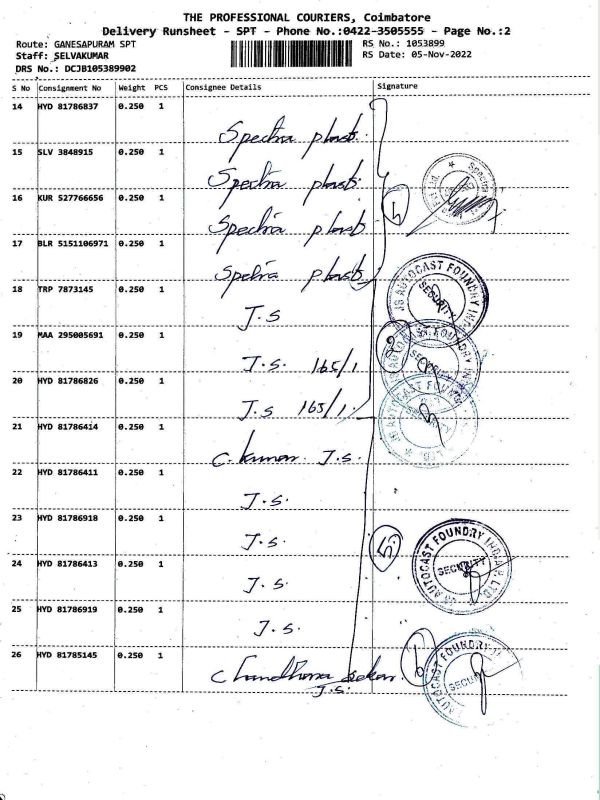 THE PROFESSIONAL COURIERS, Coimbatore
Delivery Runsheet - SPT - Phone No.:0422-3505555 - Page No.:2
Route: GANESAPURAM SPT
RS No.: 1053899
Staff: SELVAKUMAR
RS Date: 05-Nov-2022
DRS No.: DCJB105389902
S No Consignment No Weight PCS Consignee Details Signature
14 HYD 81786837 0.250 1
Spectra plast.
15 SLV 3848915 0.250 1
Spectra plast.
16 KUR 527766656 0.250 1
Spectra plast
17 BLR 5151106971 0.250 1
Spectra plast
18 TRP 7873145 0.250 1
J.S
JS AUTOCAST FOUNDRY IND
SECURITY
19 MAA 295005691 0.250 1
J.S. 165/1
20 HYD 81786826 0.250 1
J.S 165/1.
21 HYD 81786414 0.250 1
C. Kumar. J.S.
22 HYD 81786411 0.250 1
J.S.
23 HYD 81786918 0.250 1
J.S.
5
JS AUTOCAST FOUNDRY INDIA P. LTD.
SECURITY
24 HYD 81786413 0.250 1
J.S.
25 HYD 81786919 0.250 1
J.S.
26 HYD 81785145 0.250 1
Chandhra sekar.
J.S.